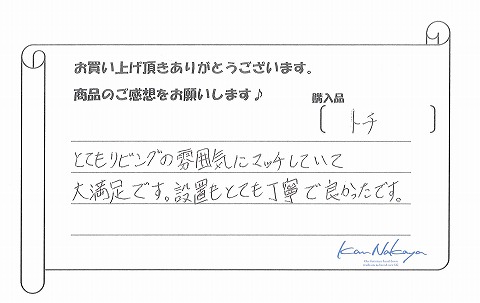 お買い上げ頂きありがとうございます。
商品のご感想をお願いします♪
購入品
〔 トチ 〕
とてもリビングの雰囲気にマッチしていて
大満足です。設置もとても丁寧で良かったです。
Kan Nakaya